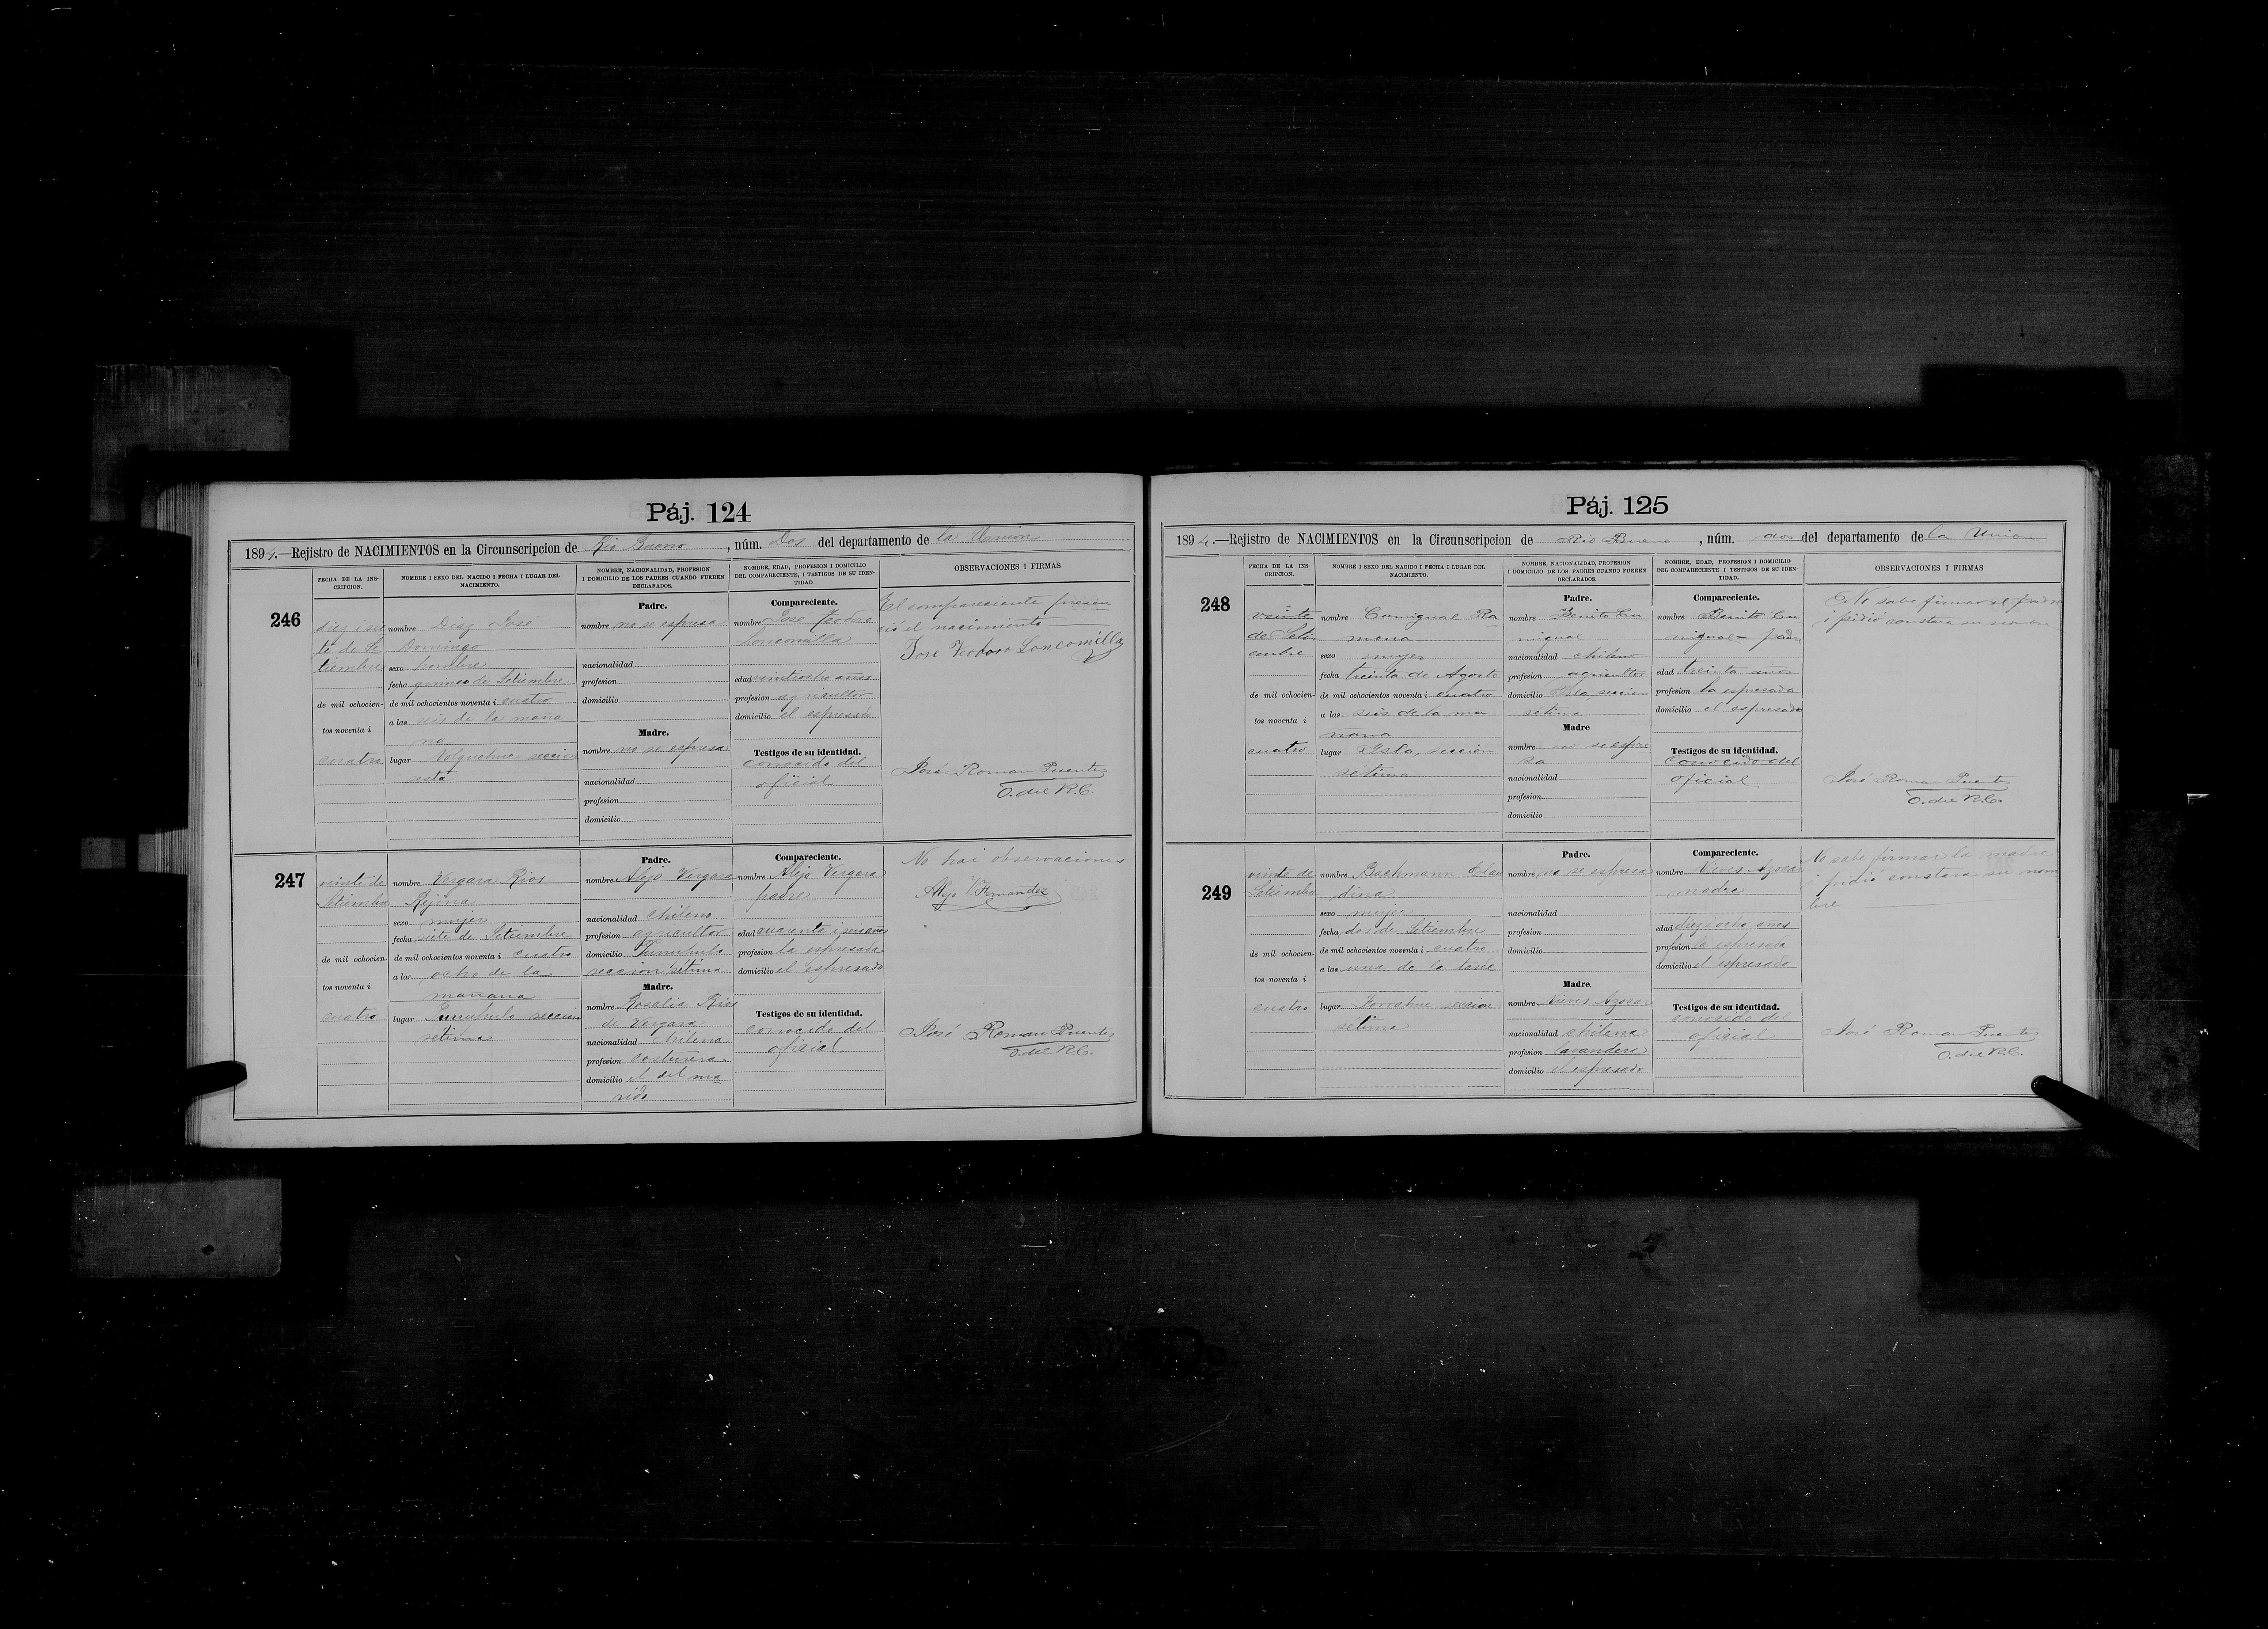 Páj. 124
1894.—Rejistro de NACIMIENTOS en la Circunscripcion de Rio Bueno, núm. Dos del departamento de la Union
FECHA DE LA INS-
CRIPCION.
NOMBRE I SEXO DEL NACIDO I FECHA I LUGAR DEL
NACIMIENTO.
NOMBRE, NACIONALIDAD, PROFESION
I DOMICILIO DE LOS PADRES CUANDO FUEREN
DECLARADOS.
NOMBRE, EDAD, PROFESION I DOMICILIO
DEL COMPARECIENTE, I TESTIGOS DE SU IDEN-
TIDAD
OBSERVACIONES I FIRMAS
246
diez i sie
te de Se
tiembre
de mil ochocien-
tos noventa i
cuatro
nombre Diaz José
Domingo
sexo hombre
fecha quince de Setiembre
de mil ochocientos noventa i cuatro
a las seis de la maña
na
lugar seccion
sesta
Padre.
nombre no se espresa
nacionalidad
profesion
domicilio
Madre.
nombre no se espresa
nacionalidad
profesion
domicilio
Compareciente.
nombre José Teodoro
Loncomilla
edad veintiocho años
profesion agricultor
domicilio el espresado
Testigos de su identidad.
conocido del
oficial
El compareciente presen
ció el nacimiento
José Teodoro Loncomilla
José Roman Puentes
O. del R.C.
247
veinte de
Setiembre
de mil ochocien-
tos noventa i
cuatro
nombre Vergara Rios
Rejina
sexo mujer
fecha siete de Setiembre
de mil ochocientos noventa i cuatro
a las ocho de la
mañana
lugar seccion
setima
Padre.
nombre Alejo Vergara
nacionalidad chileno
profesion agricultor
domicilio
seccion setima
Madre.
nombre Rosalia Rios
de Vergara
nacionalidad chilena
profesion costurera
domicilio el del ma
rido
Compareciente.
nombre Alejo Vergara
padre
edad cuarenta i seis años
profesion la espresada
domicilio el espresado
Testigos de su identidad.
conocido del
oficial
No hai observaciones
Alejo V. Fernandez
José Roman Puentes
O. del R.C.
Páj. 125
1894.—Rejistro de NACIMIENTOS en la Circunscripcion de Rio Bueno, núm. dos del departamento de la Union
FECHA DE LA INS-
CRIPCION.
NOMBRE I SEXO DEL NACIDO I FECHA I LUGAR DEL
NACIMIENTO.
NOMBRE, NACIONALIDAD, PROFESION
I DOMICILIO DE LOS PADRES CUANDO FUEREN
DECLARADOS.
NOMBRE, EDAD, PROFESION I DOMICILIO
DEL COMPARECIENTE I TESTIGOS DE SU IDEN-
TIDAD.
OBSERVACIONES I FIRMAS
248
veinte
de Seti
embre
de mil ochocien-
tos noventa i
cuatro
nombre Cumigual Ra
mona
sexo mujer
fecha treinta de Agosto
de mil ochocientos noventa i cuatro
a las seis de la ma
ñana
lugar Isla, seccion
setima
Padre.
nombre Benito Cu
migual
nacionalidad chileno
profesion agricultor
domicilio Isla seccion
setima
Madre
nombre no se espre
sa
nacionalidad
profesion
domicilio
Compareciente.
nombre Benito Cu
migual padre
edad treinta años
profesion la espresada
domicilio el espresado
Testigos de su identidad.
conocido del
oficial
No sabe firmar el padre
i pidió constara su nombre
José Roman Puentes
O. del R.C.
249
veinte de
Setiembre
de mil ochocien-
tos noventa i
cuatro
nombre Bachmann Clau
dina
sexo mujer
fecha dos de Setiembre
de mil ochocientos noventa i cuatro
a las una de la tarde
lugar seccion
setima
Padre.
nombre no se espresa
nacionalidad
profesion
domicilio
Madre.
nombre Nieves Azocar
nacionalidad chilena
profesion lavandera
domicilio el espresado
Compareciente.
nombre Nieves Azocar
madre
edad diez i ocho años
profesion la espresada
domicilio el espresado
Testigos de su identidad.
conocido del
oficial
No sabe firmar la madre
i pidió constara su nom
bre
José Roman Puentes
O. del R.C.